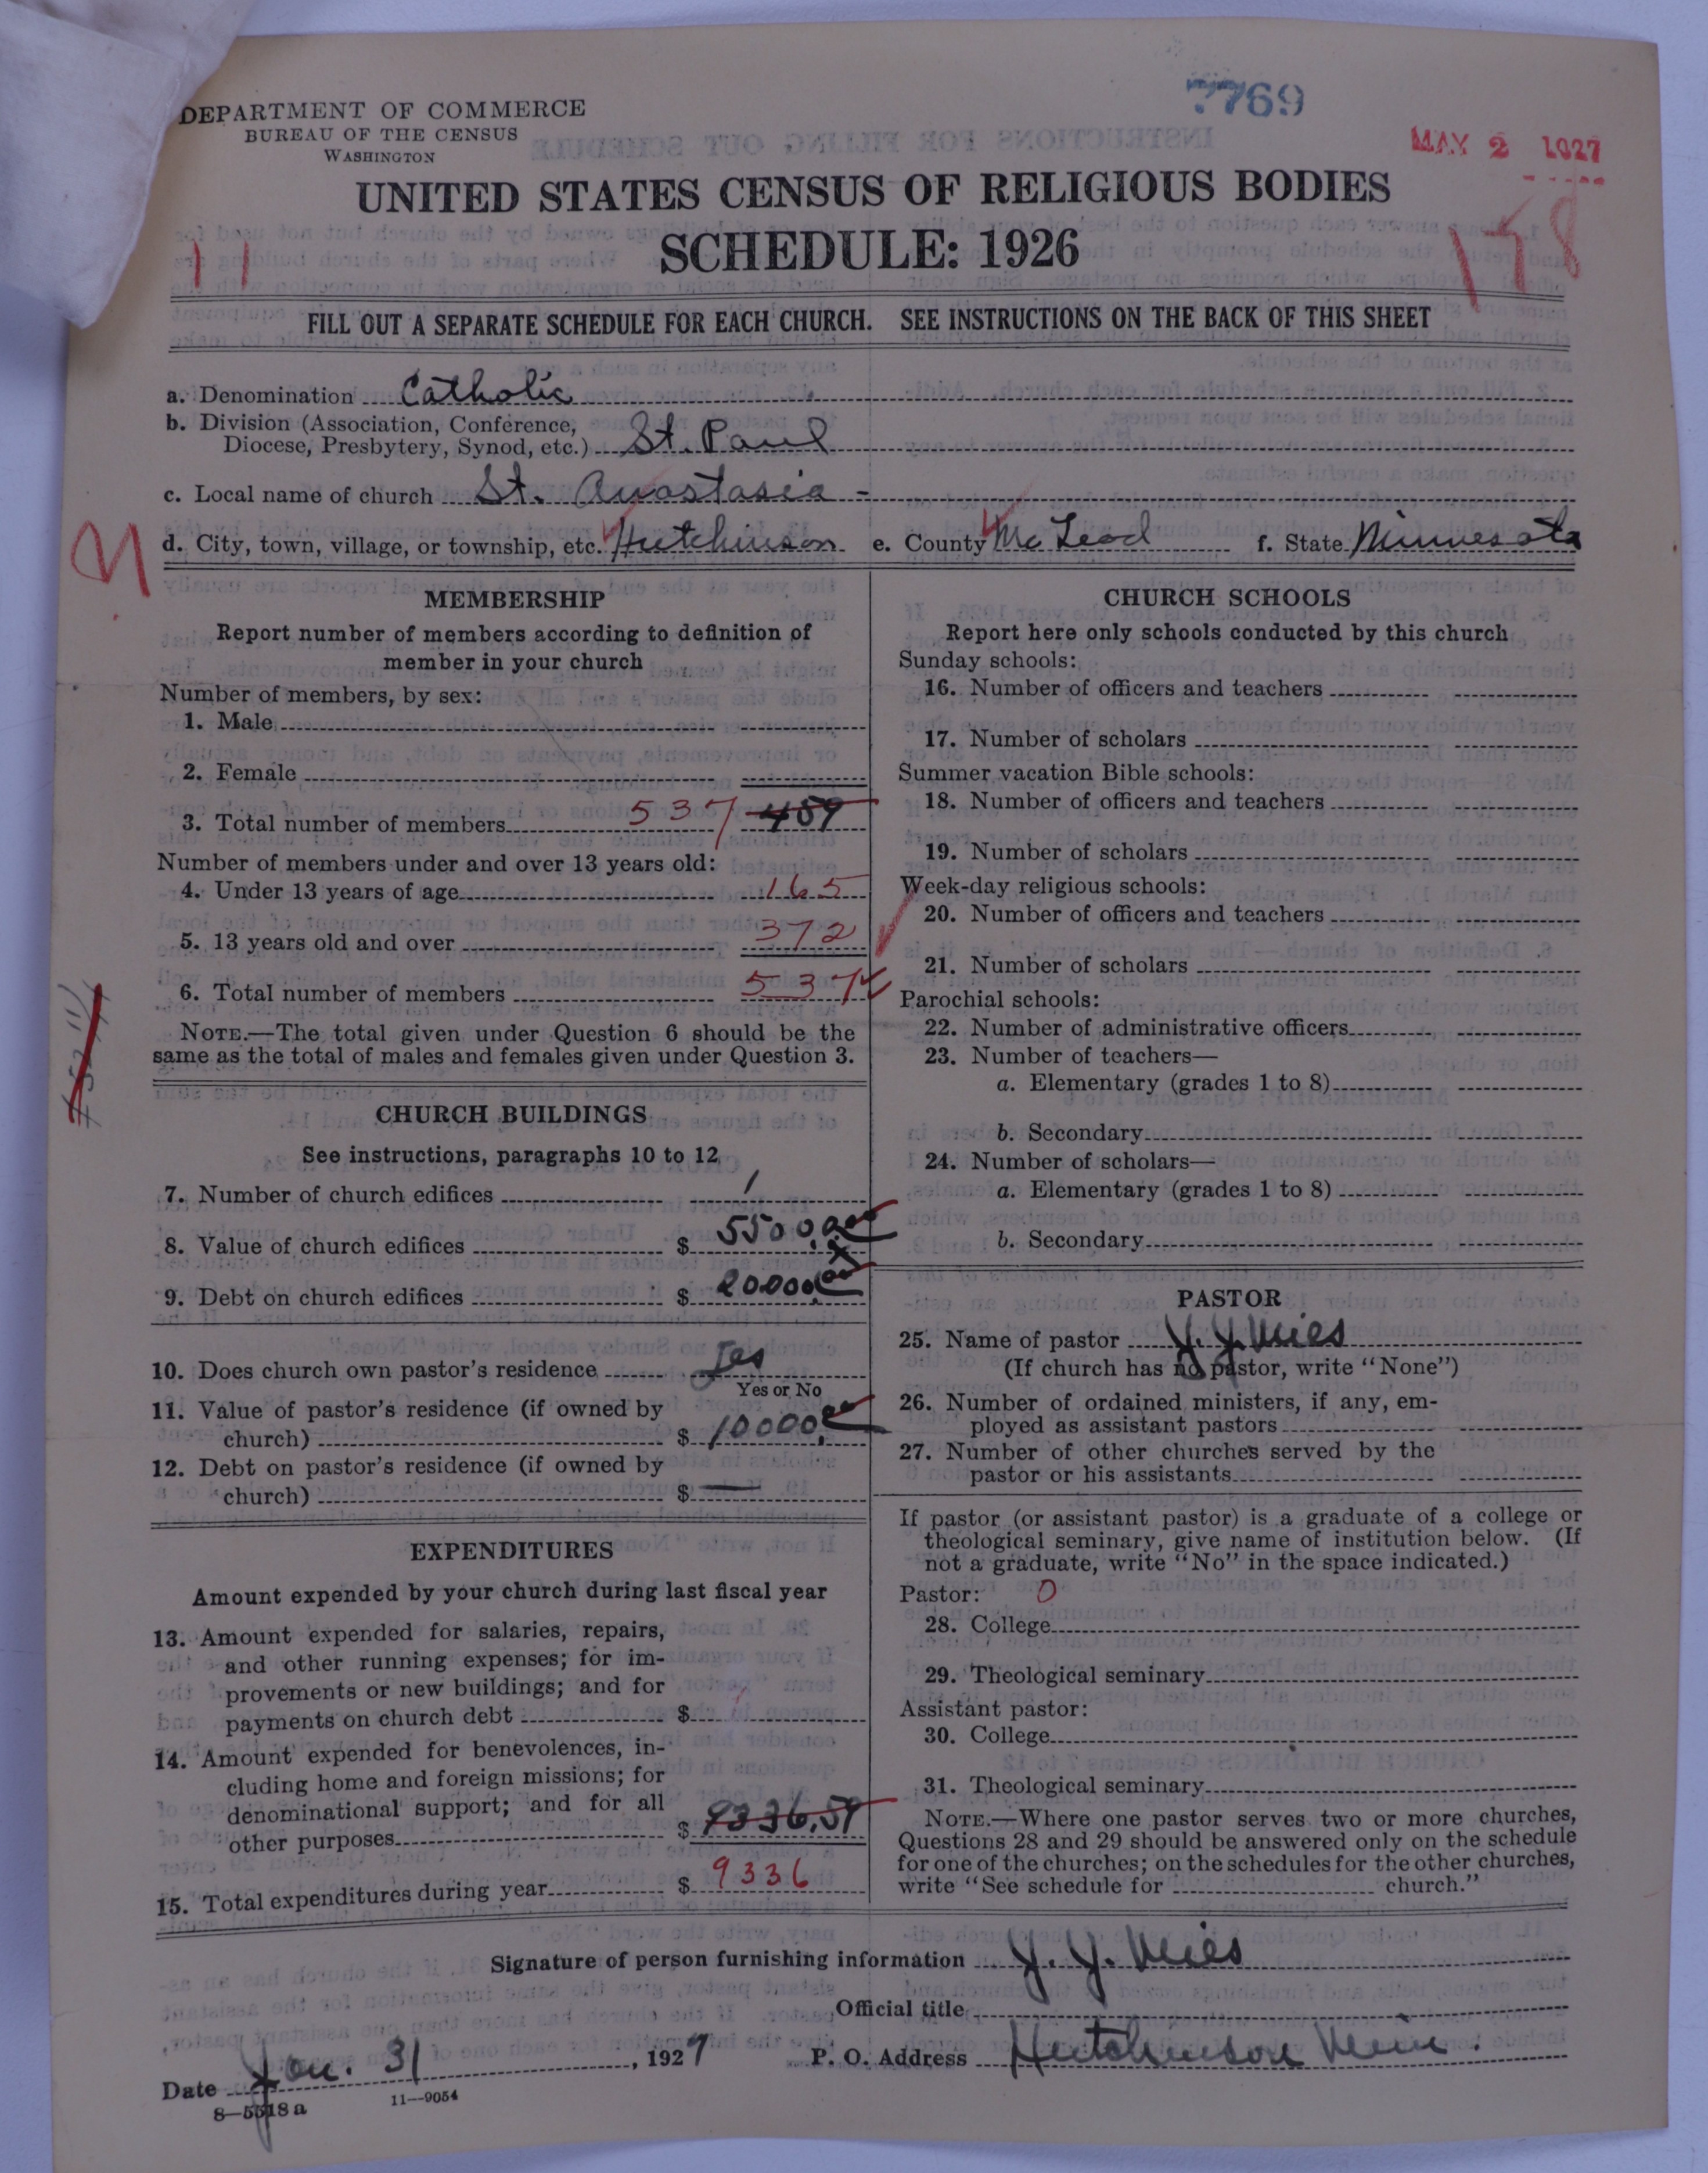 DEPARTMENT OF COMMERCE
BUREAU OF THE CENSUS
WASHINGTON
7769
MAY 2 1927
UNITED STATES CENSUS OF RELIGIOUS BODIES
SCHEDULE: 1926
11
158
FILL OUT A SEPARATE SCHEDULE FOR EACH CHURCH. SEE INSTRUCTIONS ON THE BACK OF THIS SHEET
a. Denomination Catholic
b. Division (Association, Conference,
Diocese, Presbytery, Synod, etc.) St. Paul
c. Local name of church St. Anastasia -
d. City, town, village, or township, etc. Hutchinson e. County Mc Leod f. State Minnesota
MEMBERSHIP
Report number of members according to definition of
member in your church
Number of members, by sex:
1. Male
2. Female
3. Total number of members 537 459
Number of members under and over 13 years old:
4. Under 13 years of age 165
5. 13 years old and over 372
6. Total number of members 537
NOTE.—The total given under Question 6 should be the
same as the total of males and females given under Question 3.
CHURCH BUILDINGS
See instructions, paragraphs 10 to 12
7. Number of church edifices 1
8. Value of church edifices $
9. Debt on church edifices $
10. Does church own pastor's residence Yes
Yes or No
11. Value of pastor's residence (if owned by
church) $ 10000.00
12. Debt on pastor's residence (if owned by
church) $ —
EXPENDITURES
Amount expended by your church during last fiscal year
13. Amount expended for salaries, repairs,
and other running expenses; for im-
provements or new buildings; and for
payments on church debt $
14. Amount expended for benevolences, in-
cluding home and foreign missions; for
denominational support; and for all
other purposes $ 9336.59
15. Total expenditures during year $ 9336
CHURCH SCHOOLS
Report here only schools conducted by this church
Sunday schools:
16. Number of officers and teachers
17. Number of scholars
Summer vacation Bible schools:
18. Number of officers and teachers
19. Number of scholars
Week-day religious schools:
20. Number of officers and teachers
21. Number of scholars
Parochial schools:
22. Number of administrative officers
23. Number of teachers—
a. Elementary (grades 1 to 8)
b. Secondary
24. Number of scholars—
a. Elementary (grades 1 to 8)
b. Secondary
PASTOR
25. Name of pastor J. J. Mies
(If church has no pastor, write "None")
26. Number of ordained ministers, if any, em-
ployed as assistant pastors
27. Number of other churches served by the
pastor or his assistants
If pastor (or assistant pastor) is a graduate of a college or
theological seminary, give name of institution below. (If
not a graduate, write "No" in the space indicated.)
Pastor: 0
28. College
29. Theological seminary
Assistant pastor:
30. College
31. Theological seminary
NOTE.—Where one pastor serves two or more churches,
Questions 28 and 29 should be answered only on the schedule
for one of the churches; on the schedules for the other churches,
write "See schedule for church."
Signature of person furnishing information J. J. Mies
Official title
Date Jan. 31, 1927 P. O. Address Hutchinson Minn.
8—5518 a 11—9054